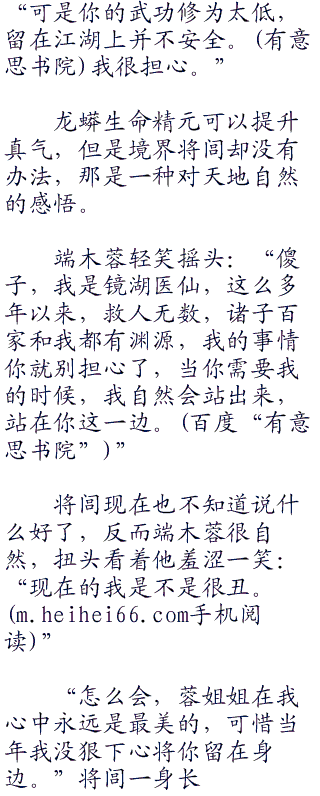 “可是你的武功修为太低，
留在江湖上并不安全。(有意
思书院)我很担心。”
龙蟒生命精元可以提升
真气，但是境界将闾却没有
办法，那是一种对天地自然
的感悟。
端木蓉轻笑摇头：“傻
子，我是镜湖医仙，这么多
年以来，救人无数，诸子百
家和我都有渊源，我的事情
你就别担心了，当你需要我
的时候，我自然会站出来，
站在你这一边。(百度“有意
思书院”)”
将闾现在也不知道说什
么好了，反而端木蓉很自
然，扭头看着他羞涩一笑：
“现在的我是不是很丑。
(m.heihei66.com手机阅
读)”
“怎么会，蓉姐姐在我
心中永远是最美的，可惜当
年我没狠下心将你留在身
边。”将闾一身长